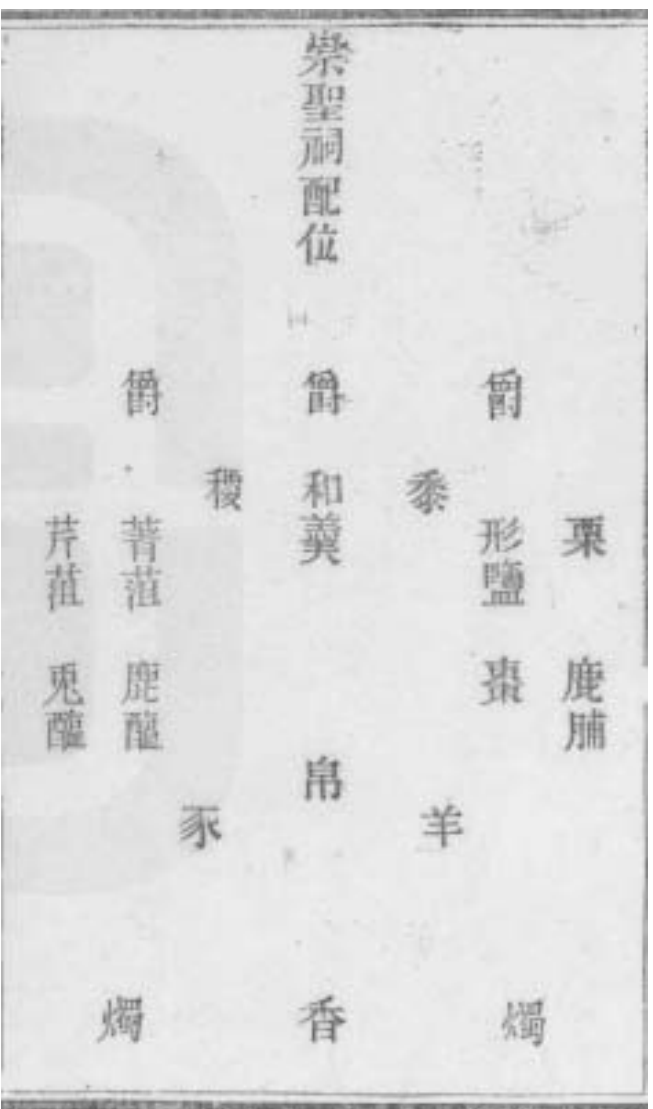 崇聖祠配位
爵 爵 爵
黍 和羹 稷
栗 鹿脯
形鹽 棗
菁菹 鹿醢
芹菹 兎醢
帛
羊 豕
燭 香 燭